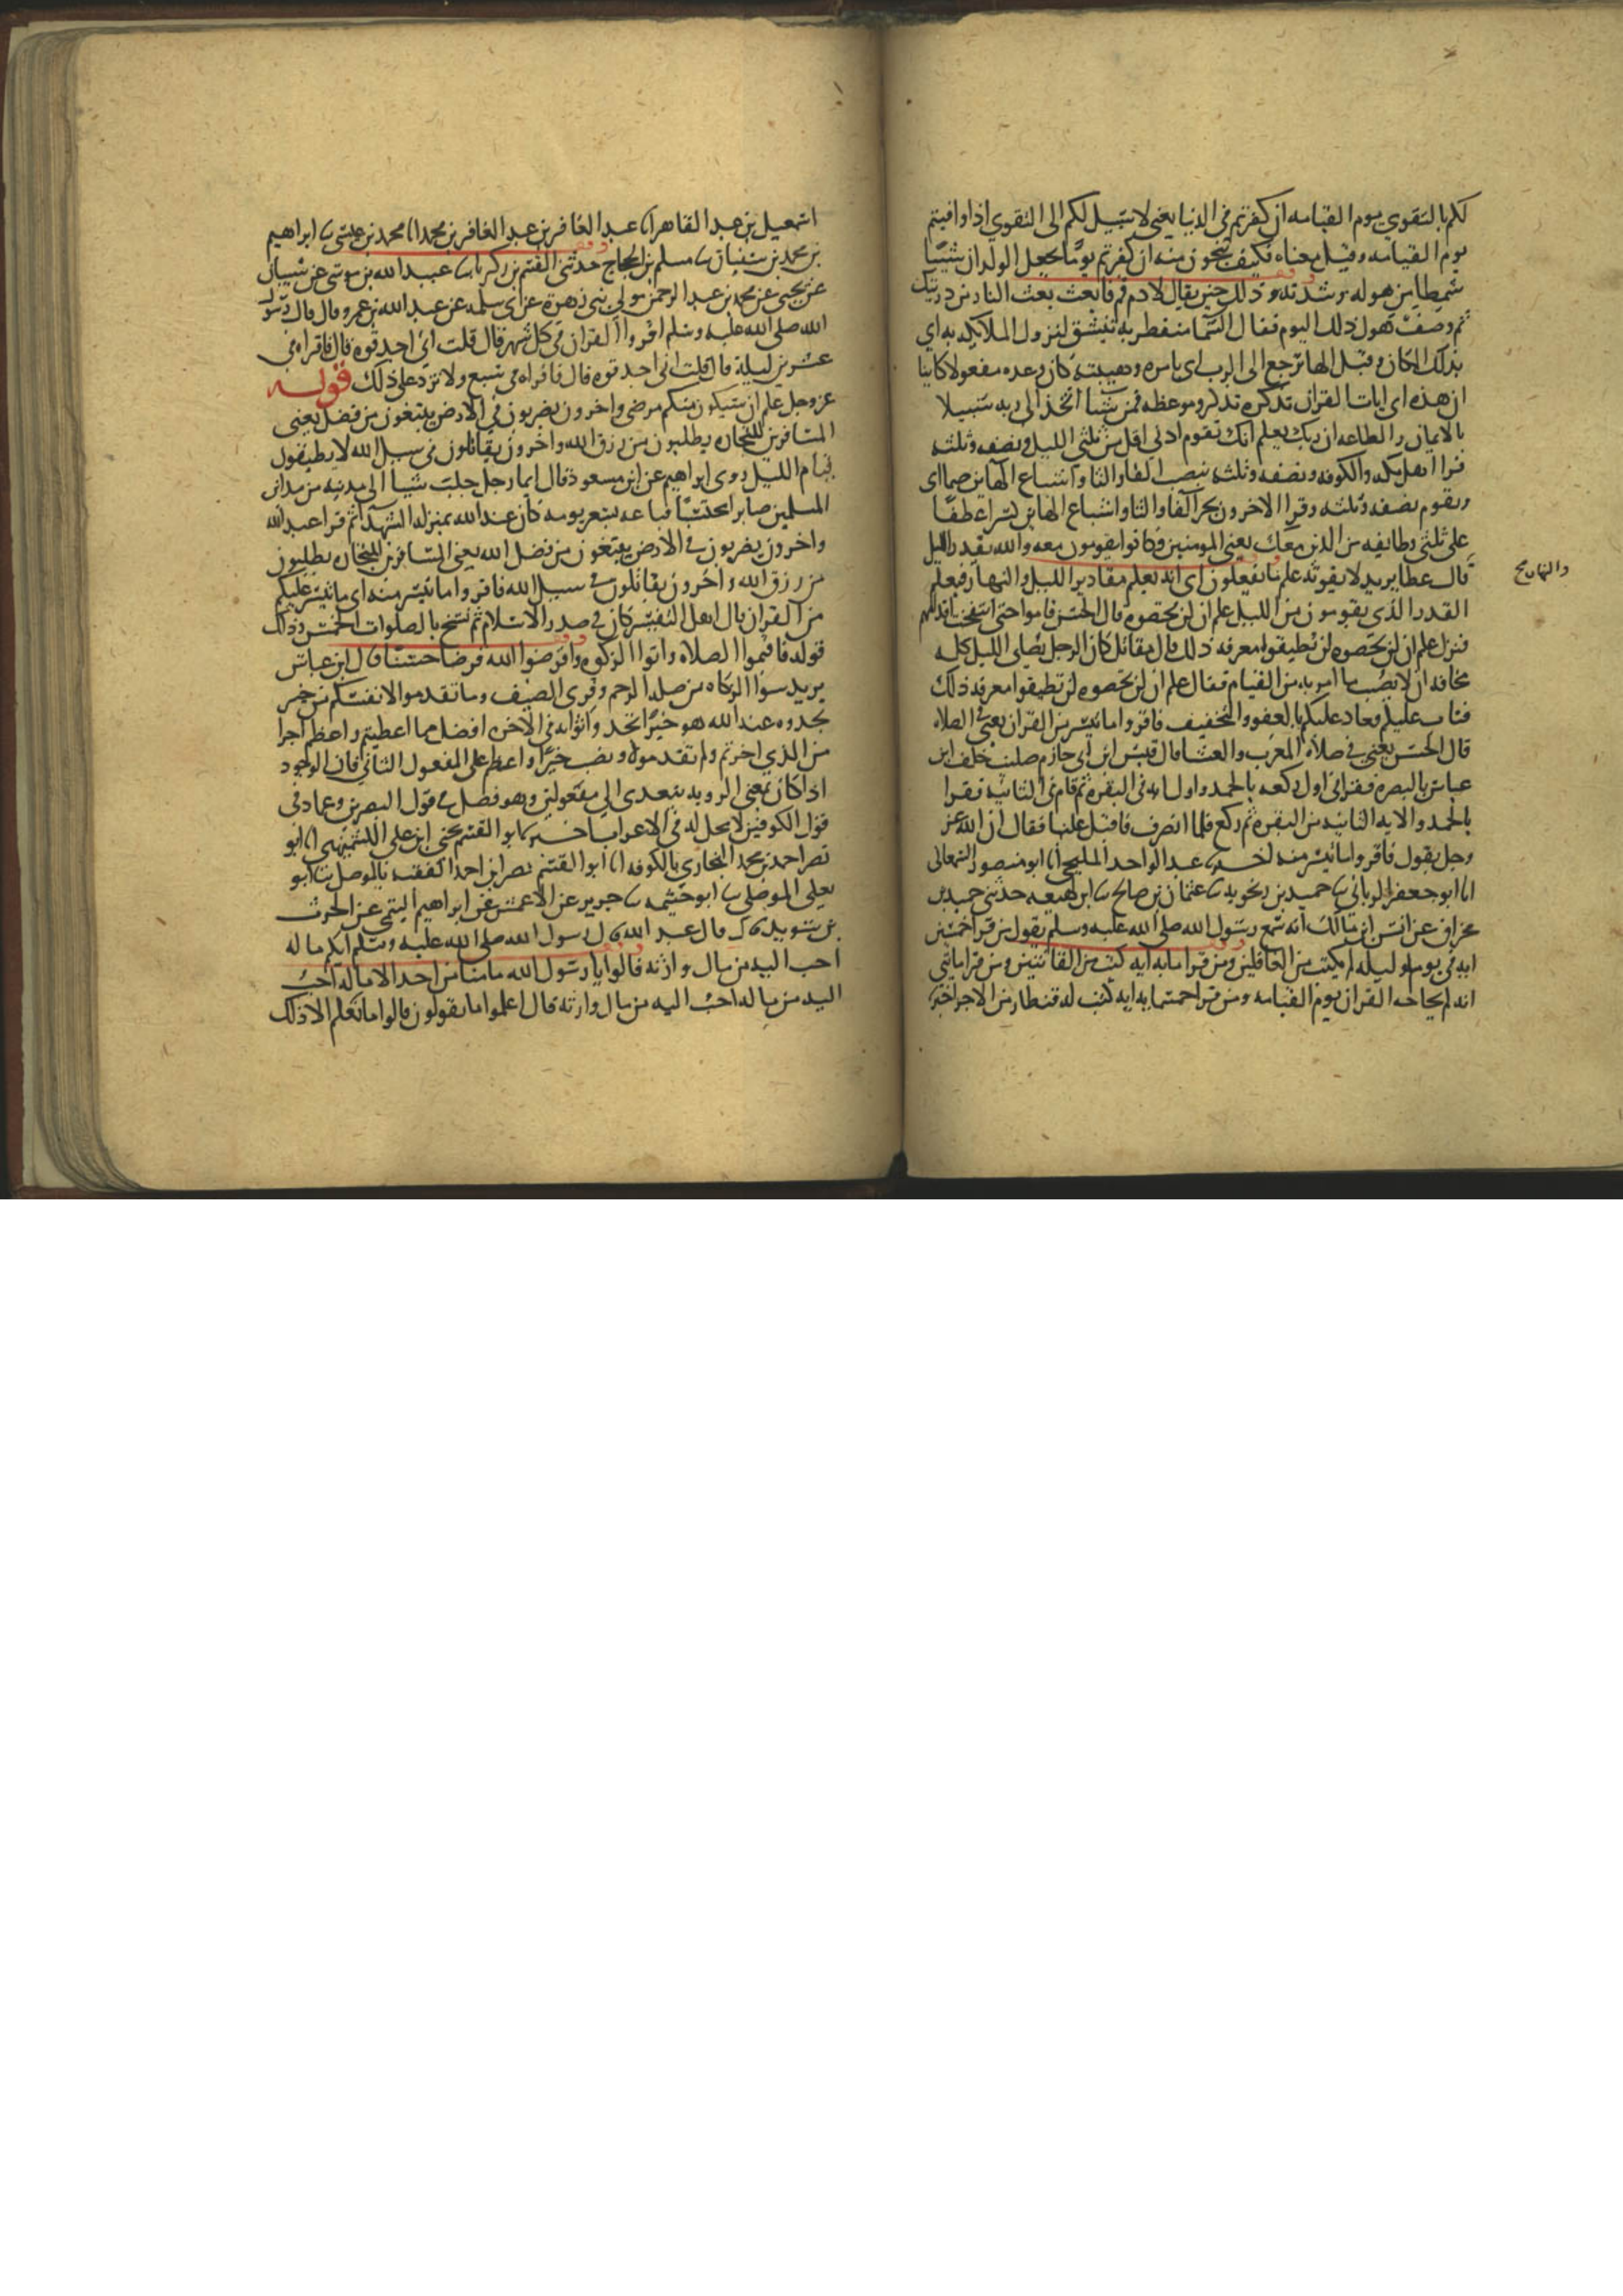 لكم بالتقوى يوم القيامه ان كفرتم فى الدنيا يعنى لا سبيل لكم الى التقوى اذا وافيتم
يوم القيامه وقيل معناه فكيف تنجون منه ان كفرتم يوما يجعل الولدان شيبا
شمطا من هوله وشدته وذلك حين يقال لادم قم فابعث بعث النار من ذريتك
ثم وصف هول ذلك اليوم فقال السما منفطر به تنشق لنزول الملايكه به اى
بذلك المكان وقيل الها ترجع الى الرب اى بامره وهيبته كان وعده مفعولا كاينا
ان هذه اى ايات القران تذكره تذكر وموعظه فمن شا اتخذ الى ربه سبيلا
بالايمان والطاعه ان ربك يعلم انك تقوم ادنى اقل من ثلثى الليل ونصفه وثلثه
قرا اهل مكه والكوفه ونصفه وثلثه بنصب الفا والثا واشباع الهاين ضما اى
ويقوم نصفه وثلثه وقرا الاخرون بجر الفا والثا واشباع الهاين كسرا عطفا
على ثلثى وطايفه من الذين معك يعنى المومنين وكانوا يقومون معه والله يقدر الليل
والنهار صح
قال عطا يريد لا يفوته علم ما تفعلون اى انه يعلم مقادير الليل والنهار فيعلم
القدر الذى يقومون من الليل علم ان لن تحصوه قال الحسن قاموا حتى انتفخت اقدامهم
فنزل علم ان لن تحصوه لن تطيقوا معرفه ذلك قال مقاتل كان الرجل يصلى الليل كله
مخافه ان لا يصيب ما امر به من القيام فقال علم ان لن تحصوه لن تطيقوا معرفه ذلك
فتاب عليكم فعاد عليكم بالعفو والتخفيف فاقروا ما تيسر من القران يعنى فى الصلاه
قال الحسن يعنى فى صلاه المغرب والعشا قال قيس ابن ابى حازم صليت خلف ابن
عباس بالبصره فقرا فى اول ركعه بالحمد واول ايه فى البقره ثم قام فى الثانيه فقرا
بالحمد والايه الثانيه من البقره ثم ركع فلما انصرف فاقبل علينا فقال ان الله عز
وجل يقول فاقروا ما تيسر منه اخبرنا عبد الواحد المليحى انا ابو منصور السمعانى
انا ابو جعفر الريانى نا حميد بن زنجويه نا عثمان بن صالح نا ابن لهيعه حدثنى حميد بن
مخراق عن انس ابن مالك انه سمع رسول الله صلى الله عليه وسلم يقول من قرا خمسين
ايه فى يوم او ليله لم يكتب من الغافلين ومن قرا مايه ايه كتب من القانتين ومن قرا مايتى
ايه لم يحاجه القران يوم القيامه ومن قرا خمسمايه ايه كتب له قنطار من الاجر اخبرنا
اسمعيل بن عبد القاهر انا عبد الغافر بن عبد الغافر بن محمد انا محمد بن عيسى نا ابراهيم
بن محمد بن سفيان نا مسلم بن الحجاج حدثنى القسم بن زكريا نا عبيد الله بن موسى عن شيبان
عن يحيى عن محمد بن عبد الرحمن مولى بنى زهره عن ابى سلمه عن عبد الله بن عمرو قال قال رسول
الله صلى الله عليه وسلم اقروا القران فى كل شهر قال قلت انى اجد قوه قال فاقراه فى
عشرين ليلة قال قلت انى اجد قوه قال فاقراه فى سبع ولا تزد على ذلك قوله
عز وجل علم ان سيكون منكم مرضى واخرون يضربون فى الارض يبتغون من فضل يعنى
المسافرين للتجاره يطلبون من رزق الله واخرون يقاتلون فى سبيل الله لا يطيقون
قيام الليل روى ابراهيم عن ابن مسعود قال ايما رجل جلب شيا الى مدينه من مداين
المسلمين صابرا محتسبا فباعه بسعر يومه كان عند الله بمنزله الشهدا ثم قرا عبد الله
واخرون يضربون فى الارض يبتغون من فضل الله يعنى المسافرين للتجاره يطلبون
من رزق الله واخرون يقاتلون فى سبيل الله فاقروا ما تيسر منه اى ما تيسر عليكم
من القران قال اهل التفسير كان فى صدر الاسلام ثم نسخ بالصلوات الخمس وذلك
قوله فاقيموا الصلاه واتوا الزكوه واقرضوا الله قرضا حسنا قال ابن عباس
يريد سوا الزكاه من صله الرحم وقرى الضيف وما تقدموا لانفسكم من خير
تجدوه عند الله هو خيرا تجد واثوابه فى الاخره افضل مما اعطيتم واعظم اجرا
من الذى اخرتم ولم تقدموه ونصب خيرا واعظم على المفعول الثانى فان الوجود
اذا كان بمعنى الرويه يتعدى الى مفعولين وهو فصل فى قول البصريين وعماد فى
قول الكوفيين لا محل له فى الاعراب اخبرنا ابو القسم يحيى ابن على الكشميهنى انا ابو
نصر احمد بن محمد البخارى بالكوفه انا ابو القسم نصر ابن احمد الفقيه بالموصل نا ابو
يعلى الموصلى نا ابو خيثمه نا جرير عن الاعمش عن ابراهيم التيمى عن الحرث
بن سويد قال قال عبد الله قال رسول الله صلى الله عليه وسلم ايكم ماله
احب اليه من مال وارثه قالوا يا رسول الله ما منا من احد الا ماله احب
اليه من ماله احب اليه من مال وارثه قال اعلموا ما تقولون قالوا ما نعلم الا ذلك